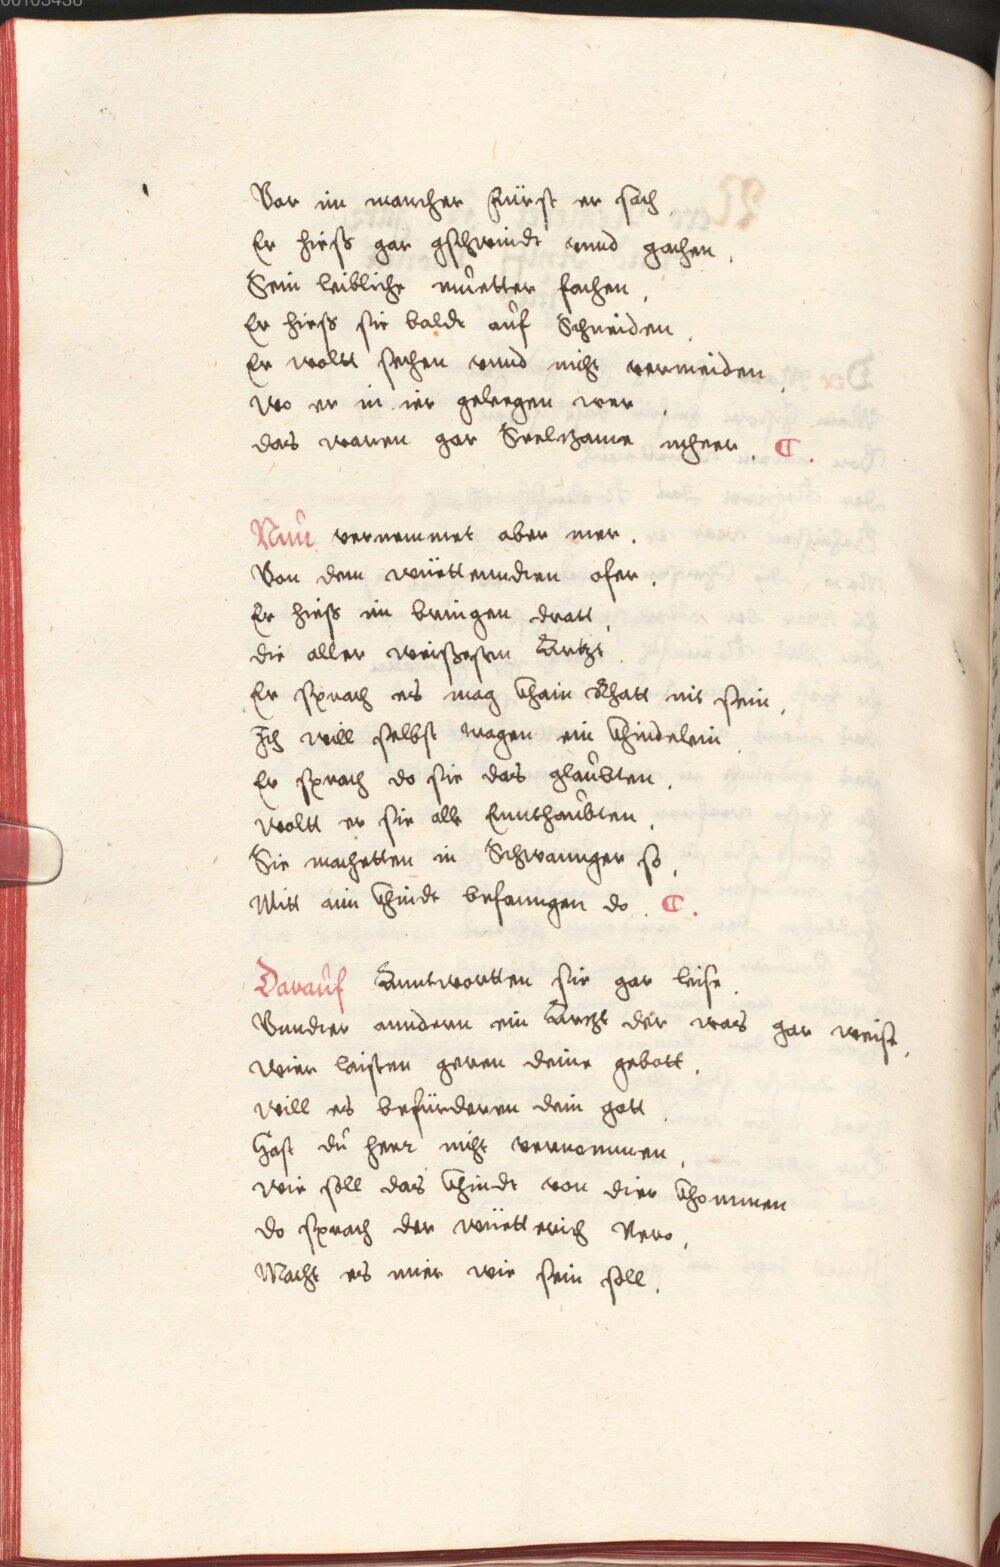 00105458
Vor im mancher Fürst er sach
Er hieß gar gschwindt vnnd gachen,
Sein leibliche muetter fachen,
Er hieß sie baldt auf Schneiden,
Er woltt sechen vnnd nicht vermeiden,
wo er in ier gelegen wer,
das waren gar Seelzame mheer. C.
Nun vernemmet aber mer,
Von dem wüettenndten ofer,
Er hieß im bringen dratt,
die aller weißesten Artzt
Er sprach es mag khain Rhatt nit sein,
Ich will selbst tragen ein khindelein
Er sprach do sie das glaubten,
woltt er sie alle Ennthaubten,
Sie machetten in Schwannger so,
Mitt aim khindt befanngen do. C.
Darauf Anntwortten sie gar leise,
Vnndter anndern ein Artzt der was gar weise,
wier laisten geren deine gebott,
will es befürderen dein gott,
Hast du herr nicht vernommen,
wie soll das khindt von dier khommen
do sprach der wüetterich Nero,
Macht es mier wie sein soll.